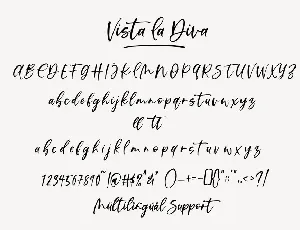 Vista la Diva
ABCDEFGHIJKLMNOPQRSTUVWXYZ
abcdefghijklmnopqrstuvwxyz
ll tt
abcdefghijklmnopqrstuvwxyz
1234567890~!@#$%^&* ()_+-={}[]|":;'",.<>?/
Multilingual Support